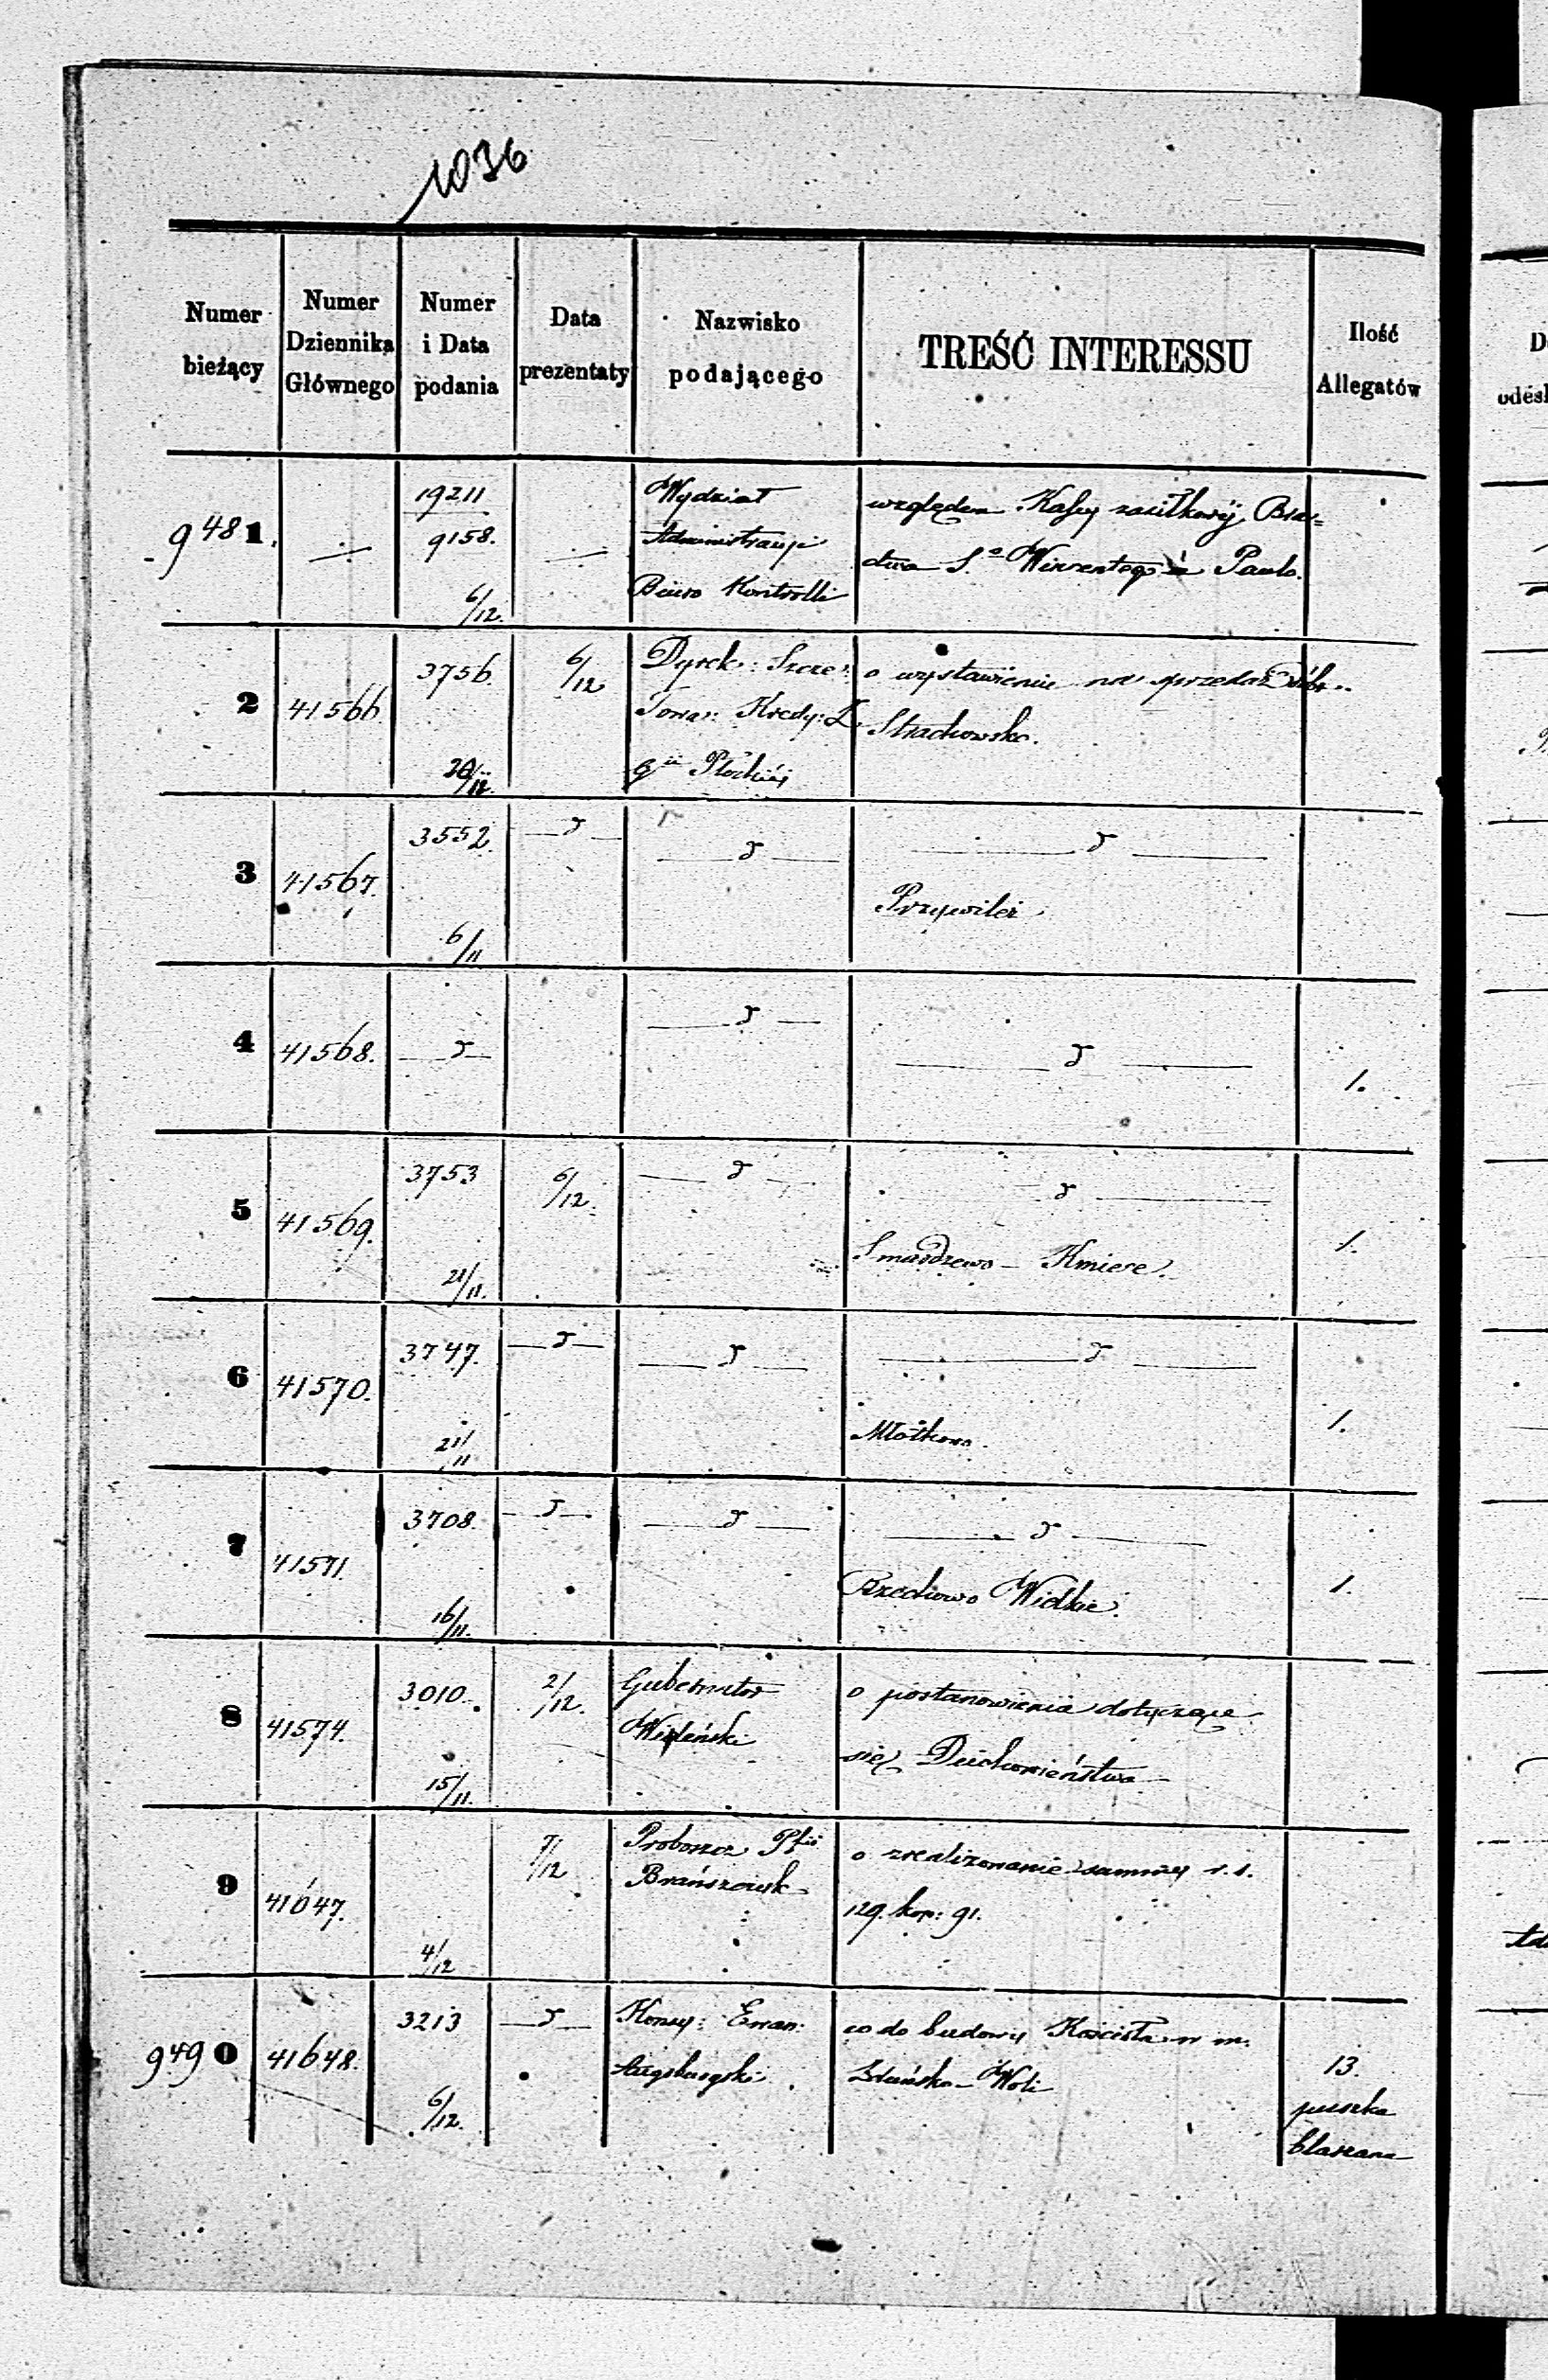 1036
Numer bieżący
Numer Dziennika Głównego
Numer i Data podania
Data prezentaty
Nazwisko podającego
TREŚĆ INTERESSU
Ilość Allegatów
9481.
19211
9158.
6/12.
Wydział
Administracyi
Biuro Kontrolli
względem Kassy zasiłkowéj Brac=
twa So Wincentego á Paulo.
2
41566.
3756.
6/12
Dyrek: Szcze:
o wystawienie na sprzedaż Dóbr
Towa: Kredy: Z.
Strachowsko.
gii Płockiéj
3
41567.
3552.
6/11
Przywilcz
4
41568.
1.
5
41569.
3753
21/11.
6/12.
Smardzewo - Kmiece.
1.
6
41570.
3747.
21/11
1.
7
41571.
3708.
16/11.
Wielkie.
1.
8
41574.
3010.
15/11.
2/12.
Gubernator
o postanowienia dotyczące
się Duchowieństwa
9
41647.
4/12
7/12
Proboszcz Pfii
o zrealizowanie summy r. s.
Brańszczyk
129. kop: 91.
9490
41648.
3213
6/12.
Konsy: Ewan:
co do budowy Kościoła w m.
Augsburgski
Zduńska-Woli
13.
puszka
blaszana